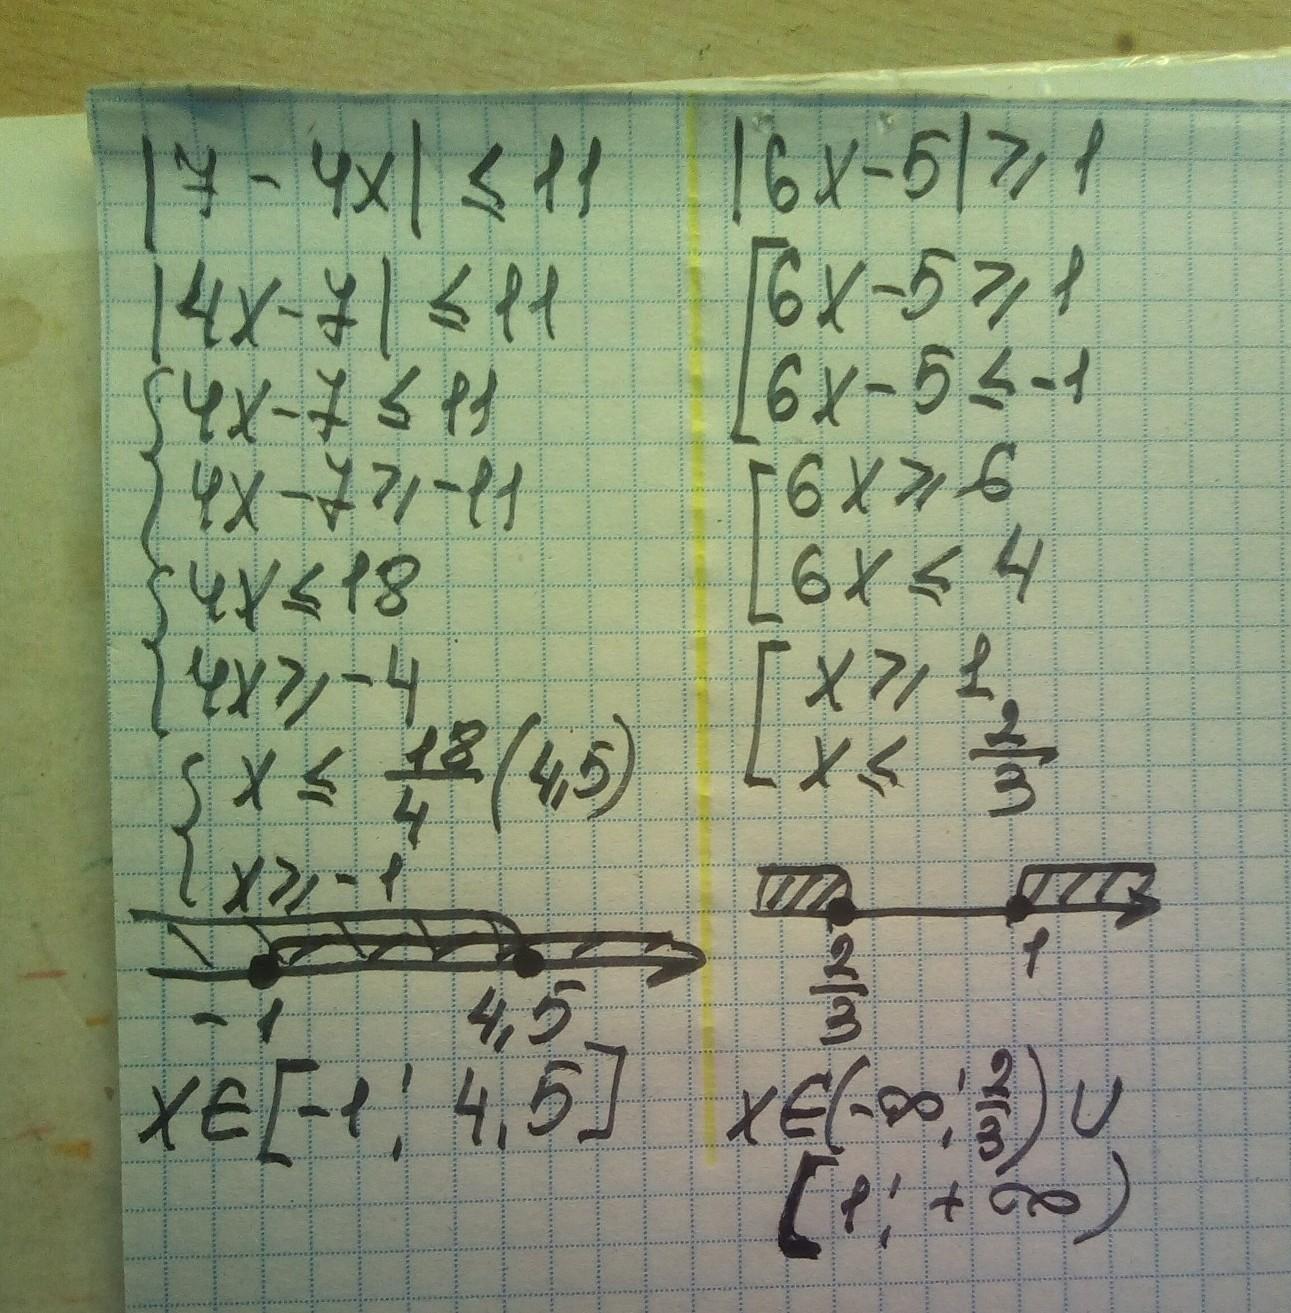 |7 - 4x| ≤ 11
|4x - 7| ≤ 11
{4x - 7 ≤ 11
4x - 7 ≥ -11
{4x ≤ 18
4x ≥ -4
{x ≤ 18/4 (4,5)
x ≥ -1
-1 4,5
x∈[-1; 4,5]
|6x - 5| ≥ 1
[6x - 5 ≥ 1
6x - 5 ≤ -1
[6x ≥ 6
6x ≤ 4
[x ≥ 1
x ≤ 2/3
2/3 1
x∈(-∞; 2/3) ∪
[1; +∞)